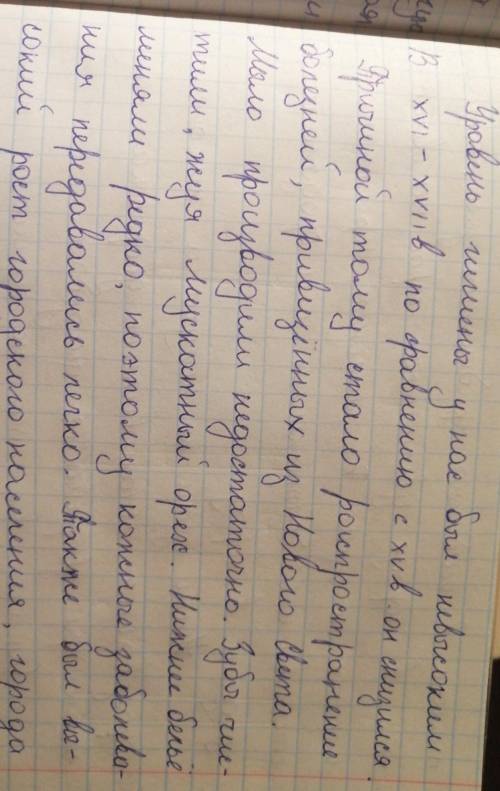 Уровень гигиены у нас был невысоким
В XVI - XVII в по сравнению с XV в. он снизился.
Причиной тому стало распространение
болезней, привизённых из Нового света.
Мыло производили недостаточно. Зубы чис-
тили, жуя мускатный орех. Нижнее бельё
меняли редко, поэтому кожные заболева-
ния передавались легко. Также был вы-
сокий рост городского населения, города